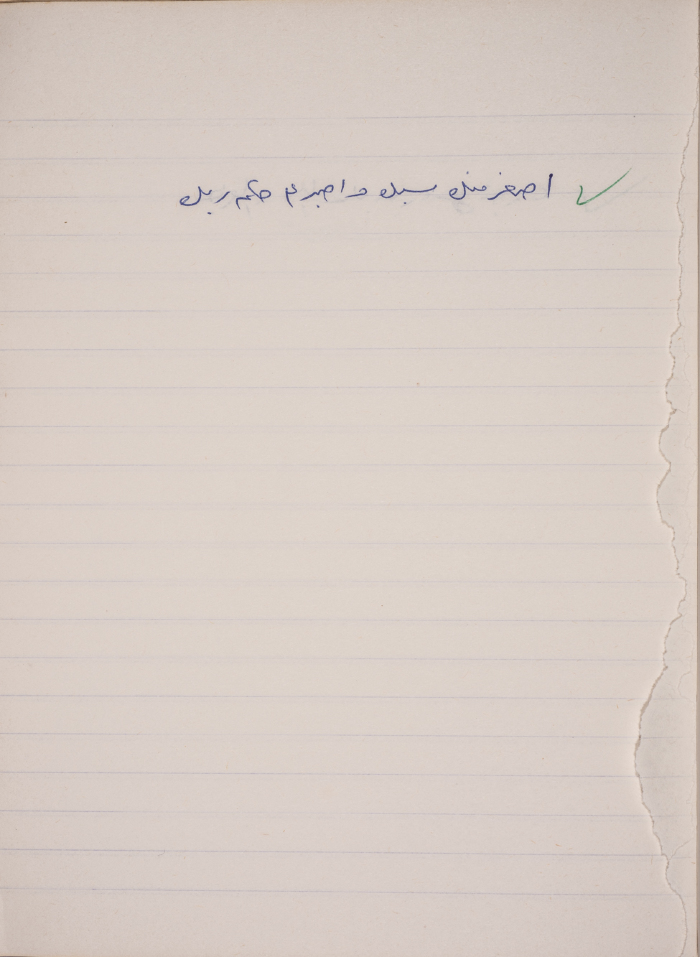 اصغر منك سبك واصبر ع حكم ربك